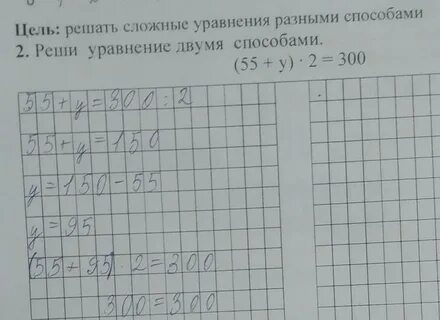 Цель: решать сложные уравнения разными способами
2. Реши уравнение двумя способами.
(55 + у) · 2 = 300
55+y=300:2
55+y=150
y=150-55
y=95
(55+95)·2=300
300=300